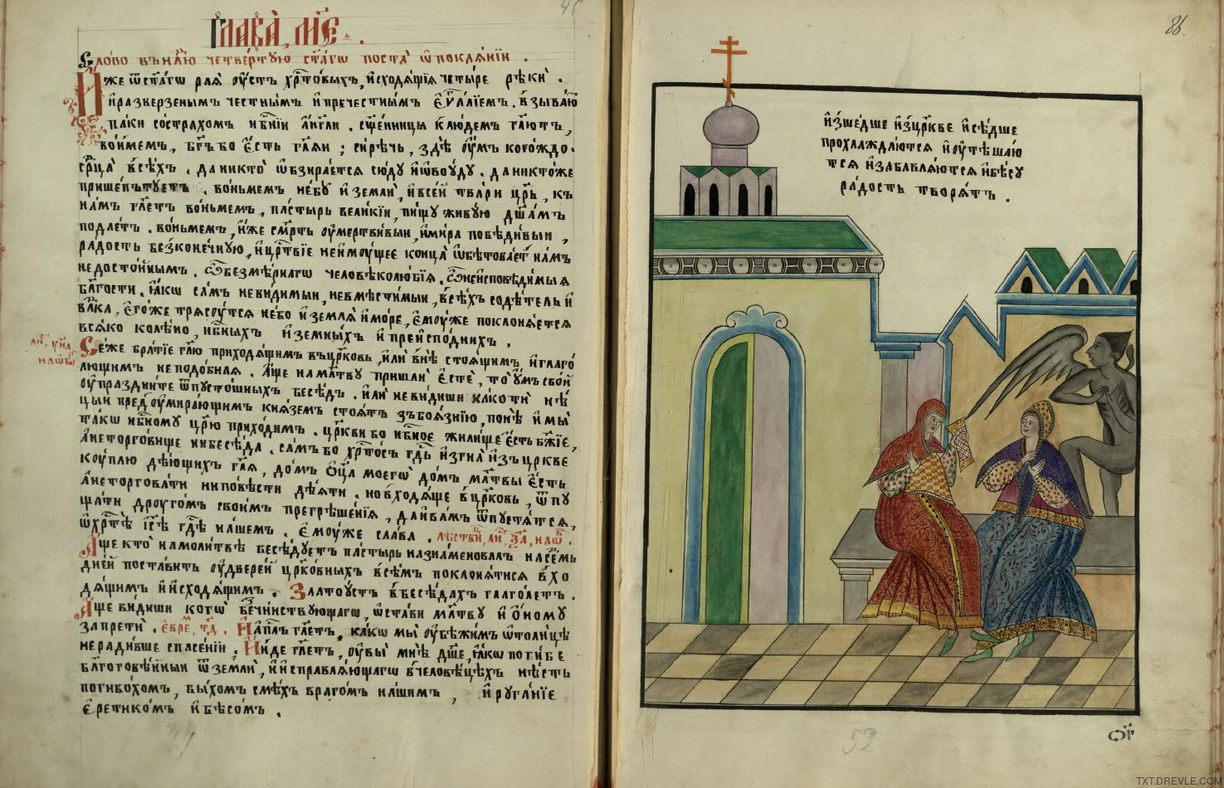 45
Глава, м҃є .
Слово въ нл҃ю четвертую ст҃агѡ поста ѡ҆ покаѧнїи .
Иже ѿ ст҃агѡ раѧ ѹ҆стъ хрт҃овыхъ, и҆сходѧщїѧ четыре рѣки .
и҆ разверзенымъ честнымъ и҆ пречестнымъ є҆ѵⷢ҇алїемъ . взываю
паки со страхомъ нб҃нїи а҆нг҃ли . сщ҃енницы к людемъ гл҃ютъ,
воньмемъ, бг҃ъ бо є҆сть гл҃ѧи ; сирѣчь, здѣ ѹ҆мъ когождо
срд҃ца всѣхъ . да никто ѡ҆бзираетсѧ сюду и҆ ѡ҆воуду . да никтоже
пришепътуетъ . воньмемъ небу и҆ земли, и҆ всей твари цр҃ь, къ
намъ гл҃етъ воньмемъ, пастырь великїи, пищу живую дш҃амъ
подаетъ . воньмемъ, и҆же смр҃ть ѹ҆мертвивыи, и҆ мира побѣдивыи,
радость безконечную, и҆ црт҃вїе не и҆мѹщее конца ѡ҆бѣтоваетъ намъ
недостойнымъ . ѽ безмѣрнагѡ человѣколюбїѧ . ѽ неисповѣдимыѧ
бл҃гости . ꙗ҆кѡ самъ невидимыи, невмѣстимыи, всѣхъ содѣтель и҆
вл҃ка, є҆гоже трѧсѹтсѧ небо и҆ землѧ и҆ море, є҆мѹже поклонѧетсѧ
всѧко колѣно, нб҃ныхъ и҆ земныхъ и҆ преисподнихъ .
Сеже братїе гл҃ю приходѧщимъ въ цр҃ковь, и҆ли внѣ стоѧщимъ и҆ глаго
лющимъ неподобнаѧ . А҆ще на мл҃тву пришли є҆сте, то ѹ҆мъ свой
ѹ҆праздните ѿ пустошныхъ бесѣдъ . и҆ли не видиши како ти нѣ
цыи пред ѹ҆мирающимъ кнѧземъ стоѧтъ з боѧзнїю, понѣ и҆ мы
такѡ нб҃ному цр҃ю приходимъ . цр҃кви бо нб҃ное жилище є҆сть бж҃їе,
а҆ не торговище ни бесѣда . самъ бо хрт҃осъ гд҃ь и҆згна и҆зъ цр҃кве
куплю дѣющихъ гл҃ѧ, домъ ѻ҆ц҃а моегѡ домъ мл҃твы є҆сть
а҆ не торговати ни повѣсти дѣѧти . но входѧще в цр҃ковь, ѿпу
щати дрѹгомъ своимъ прегрѣшенїѧ, да и҆ вамъ ѿпустѧтсѧ,
ѡ҆ хрт҃ѣ і҆с҃ѣ гд҃ѣ нашемъ . є҆мѹже слава .
А҆ще кто на молитвѣ бесѣдуетъ пастырь назнаменовалъ на семь
дней поставить ѹ҆ дверей цр҃ковныхъ всѣмъ поклонѧтисѧ вхо
дѧщимъ и҆ и҆сходѧщимъ . Златоустъ в бесѣдахъ глаголетъ .
А҆ще видиши когѡ безчинствующагѡ, ѡ҆стави мл҃тву и҆ ѻ҆ному
запрети . є҆вре҃, тд҃ . И҆ ап҃лъ гл҃етъ, какѡ мы ѹ҆бѣжимъ ѿ толицѣ
нерадивше спасенїи, И҆ндѣ гл҃етъ, ѹ҆вы мнѣ дш҃е, ꙗ҆кѡ погибе
благоговѣйныи ѿ земли, и҆ и҆справлѧющагѡ в человѣцѣхъ нѣсть
погибохомъ, быхомъ смѣхъ врагомъ нашимъ, и҆ руганїе
є҆ретикомъ и҆ бѣсомъ .
86.
и҆зшедше и҆з цр҃кве и҆ сѣдше
прохлаждаютсѧ и҆ ѹ҆тѣшаю
тсѧ и҆ забавлѧютсѧ и҆ бѣсу
радость творѧтъ .
52
TXT.DREVLE.COM